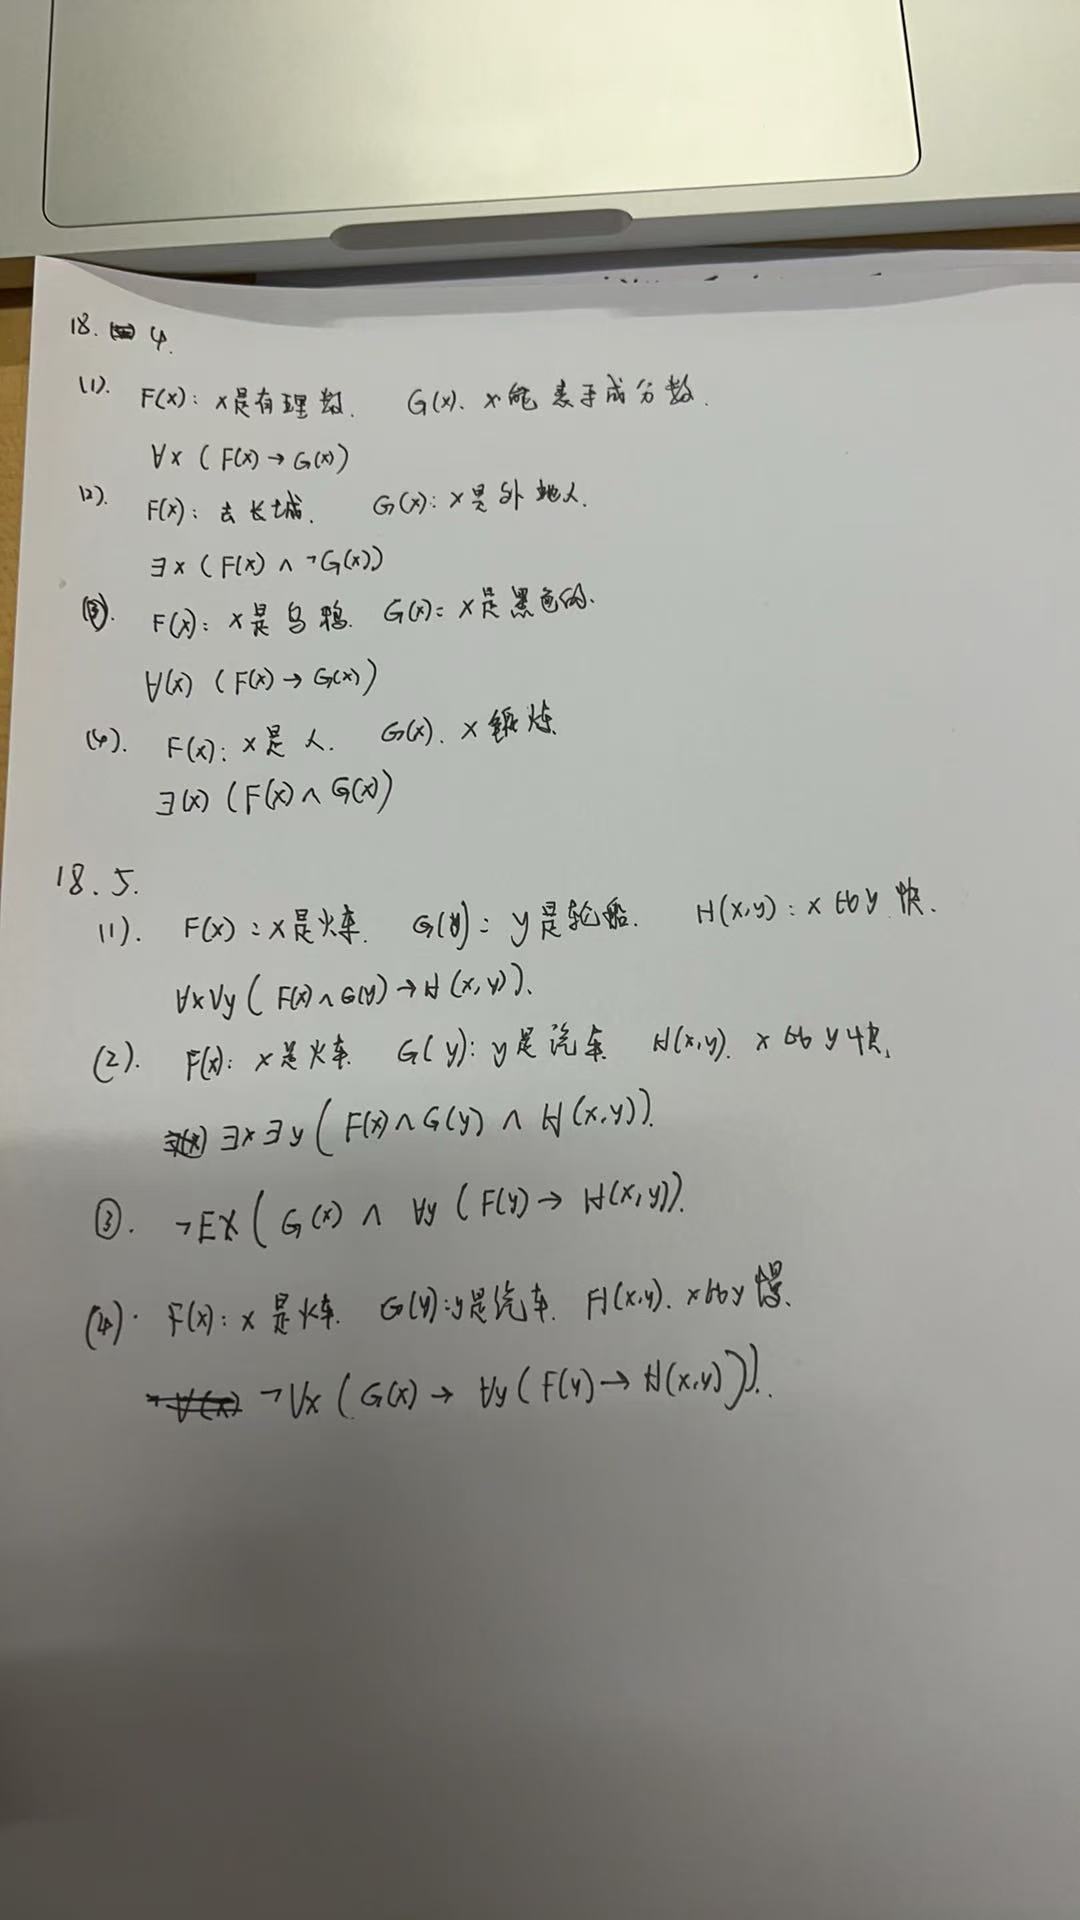 18. 4.
(1). F(x): x是有理数. G(x). x能表于成分数.
∀x (F(x)→G(x))
(2). F(x): 去长城. G(x): x是外地人.
∃x (F(x)∧¬G(x))
(3). F(x): x是乌鸦. G(x): x是黑色的.
∀(x) (F(x)→G(x))
(4). F(x): x是人. G(x). x锻炼
∃(x) (F(x)∧G(x))
18.5.
(1). F(x): x是火车. G(y): y是轮船. H(x,y): x比y快.
∀x∀y(F(x)∧G(y)→H(x,y)).
(2). F(x): x是火车 G(y): y是汽车 H(x,y). x比y快.
∃x∃y(F(x)∧G(y)∧H(x,y)).
③. ¬EX(G(x)∧∀y(F(y)→H(x,y)).
(4). F(x): x是火车. G(y): y是汽车. H(x,y). x比y慢.
¬∀x(G(x)→∀y(F(y)→H(x,y))).